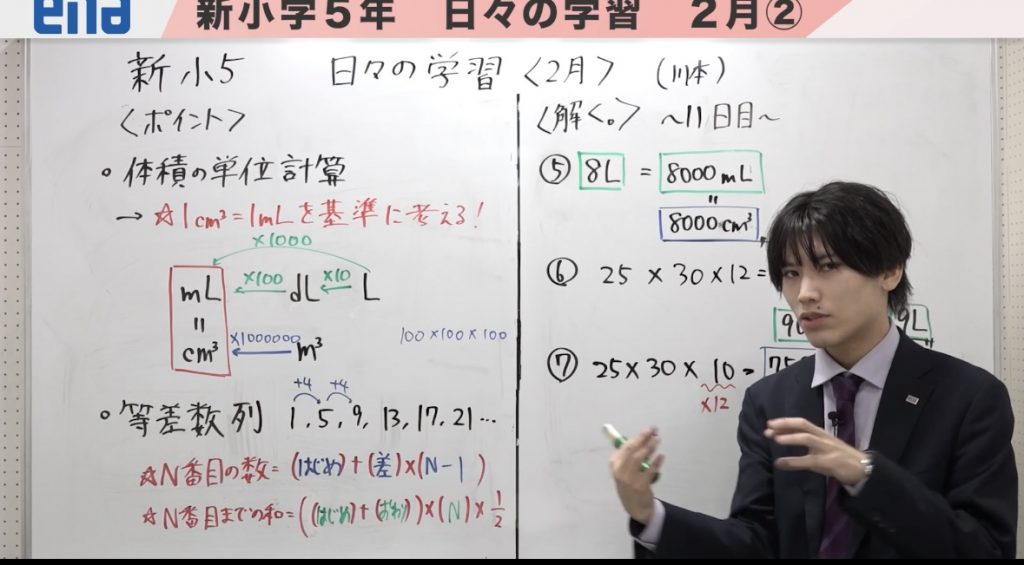 ena 新小学5年 日々の学習 2月②
新小5 日々の学習 〈2月〉 (川本)
〈ポイント〉
• 体積の単位計算
→ ☆1cm³=1mLを基準に考える!
×1000
mL ×100 dL ×10 L
=
cm³ ×1000000 m³ 100×100×100
+4 +4
• 等差数列 1, 5, 9, 13, 17, 21…
☆N番目の数=(はじめ)+(差)×(N-1)
☆N番目までの和=((はじめ)+(おわり))×(N)×1/2
〈解く。〉 ~11日目~
⑤ 8L = 8000mL
=
8000cm³
⑥ 25×30×12=
9L
⑦ 25×30×10=
×12